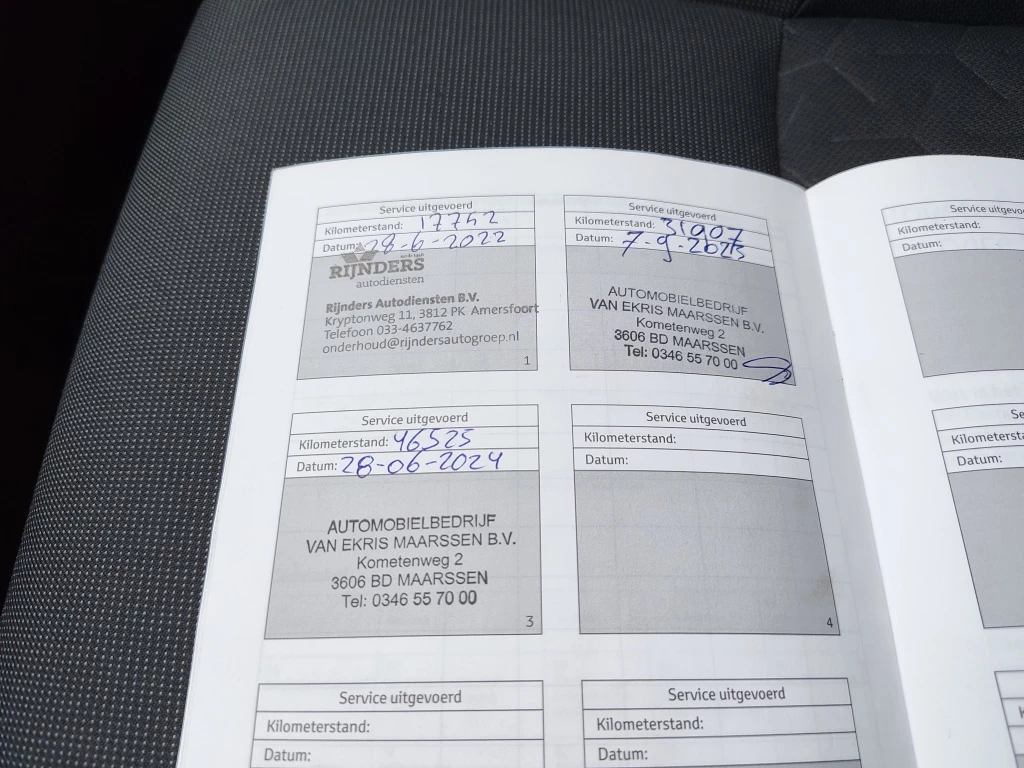 Service uitgevoerd
Kilometerstand: 17742
Datum: 28-6-2022
RIJNDERS
autodiensten
Rijnders Autodiensten B.V.
Kryptonweg 11, 3812 PK Amersfoort
Telefoon 033-4637762
onderhoud@rijndersautogroep.nl
1
Service uitgevoerd
Kilometerstand: 31907
Datum: 7-9-2023
AUTOMOBIELBEDRIJF
VAN EKRIS MAARSSEN B.V.
Kometenweg 2
3606 BD MAARSSEN
Tel: 0346 55 70 00
Service uitgevoerd
Kilometerstand: 46525
Datum: 28-06-2024
AUTOMOBIELBEDRIJF
VAN EKRIS MAARSSEN B.V.
Kometenweg 2
3606 BD MAARSSEN
Tel: 0346 55 70 00
3
Service uitgevoerd
Kilometerstand:
Datum:
4
Service uitgevoerd
Kilometerstand:
Datum:
Service uitgevoerd
Kilometerstand:
Datum:
Service uitgevo
Kilometerstand:
Datum:
Se
Kilometersta
Datum: